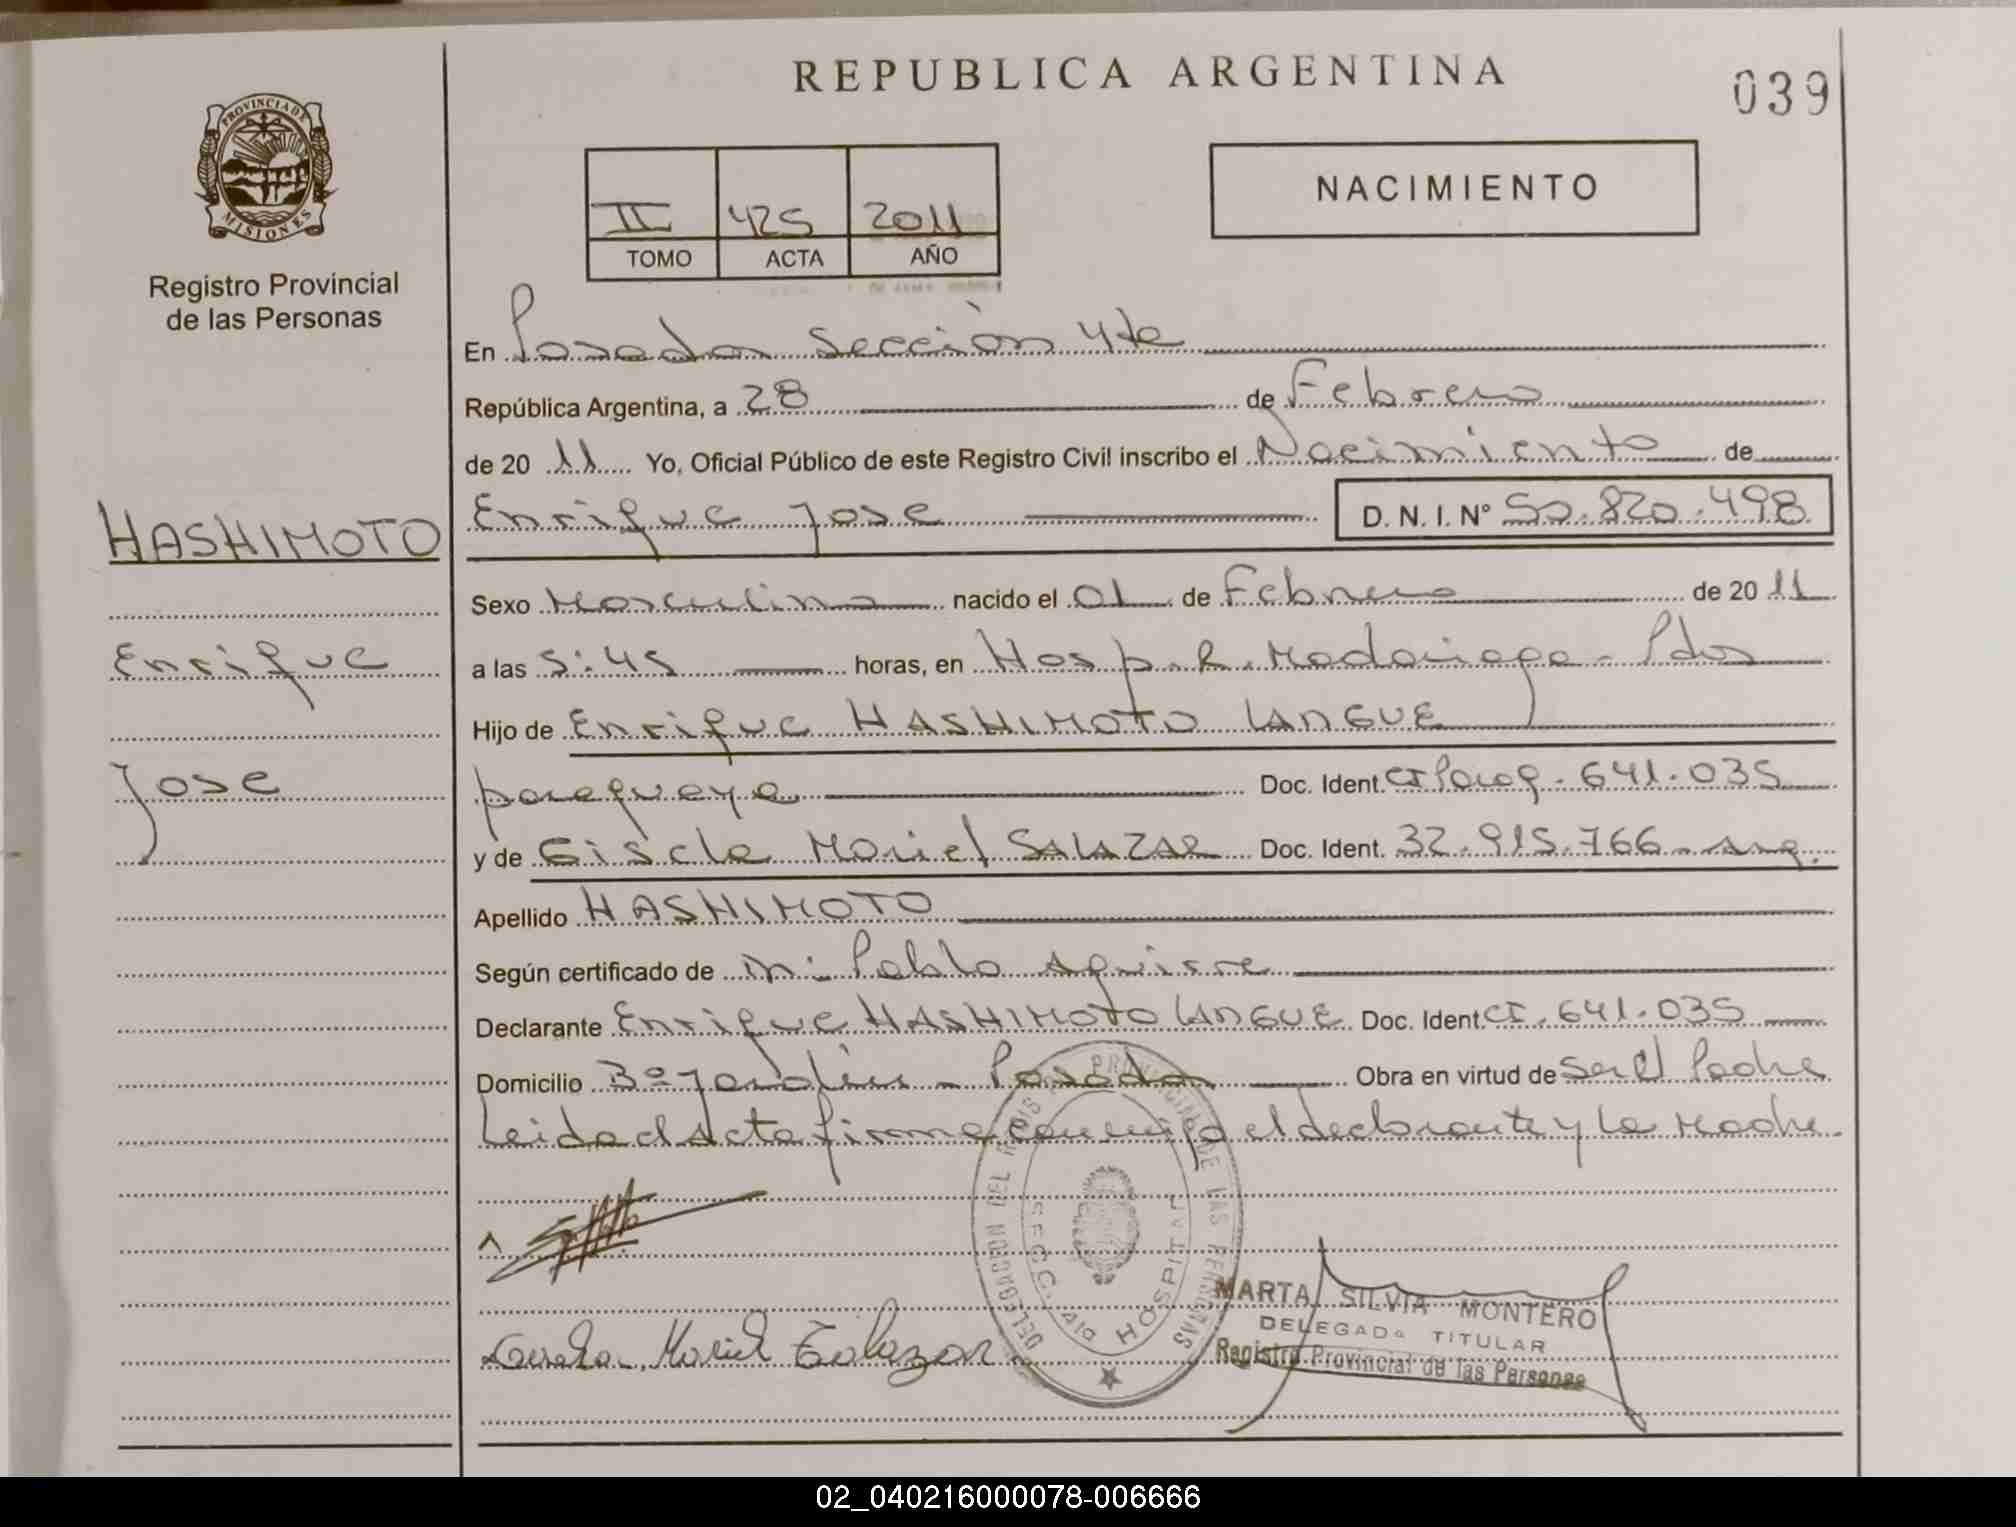 REPUBLICA ARGENTINA
039
PROVINCIA DE MISIONES
Registro Provincial
de las Personas
NACIMIENTO
II 425 2011
TOMO ACTA AÑO
En Posadas Sección 4ta
República Argentina, a 28 de Febrero
de 2011 Yo, Oficial Público de este Registro Civil inscribo el Nacimiento de
HASHIMOTO
Enrique Jose D. N. I. Nº 50.820.498
Sexo Masculino nacido el 01 de Febrero de 2011
Enrique
a las 5:45 horas, en Hosp. R. Madariaga - Pdas
Hijo de Enrique HASHIMOTO LANGUE
Jose
paraguaya Doc. Ident. CI Parag. 641.035
y de Gisela Mariel SALAZAR Doc. Ident. 32.915.766 - Arg.
Apellido HASHIMOTO
Según certificado de M: Pablo Aguirre
Declarante Enrique HASHIMOTO LANGUE Doc. Ident. CI. 641.035
Domicilio 3º Jardin - Posadas Obra en virtud de Ser el Padre
Leida el Acta firma conmigo el declarante y la Madre.
DELEGACION DEL REGISTRO PROVINCIAL DE LAS PERSONAS
SECC. 4ta HOSPITAL
MARTA SILVIA MONTERO
DELEGADA TITULAR
Registro Provincial de las Personas
Mariel Salazar
02_040216000078-006666